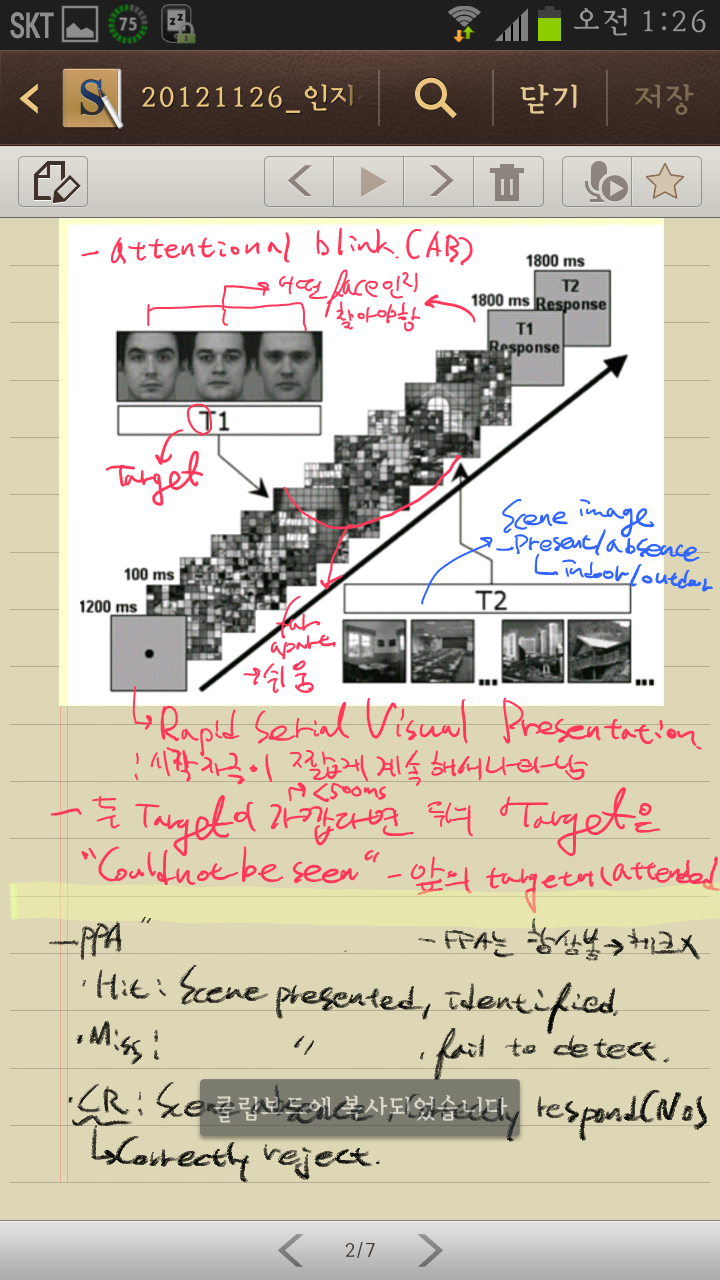 SKT 75 zz 오전 1:26
S 20121126_인지 닫기 저장
- Attentional blink.(AB)
어떤 face인지
찾아야함
1800 ms
T2
Response
1800 ms
T1
Response
T1
Target
100 ms
1200 ms
Scene image
-Present/absence
indoor/outdoor
T2
far
apart
→쉬움
... ...
Rapid Serial Visual Presentation
: 시각자극이 짧게 계속해서 나타남
→<500ms
- 두 Target이 가깝다면 뒤의 Target은
"Could not be seen" - 앞의 target에 (attended
-PPA "
- FFA는 항상봄→체크X
·Hit: Scene presented, identified.
·Miss: " , fail to detect.
·CR: Scene absence, correctly respond(No)
클립보드에 복사되었습니다
Correctly reject.
2/7